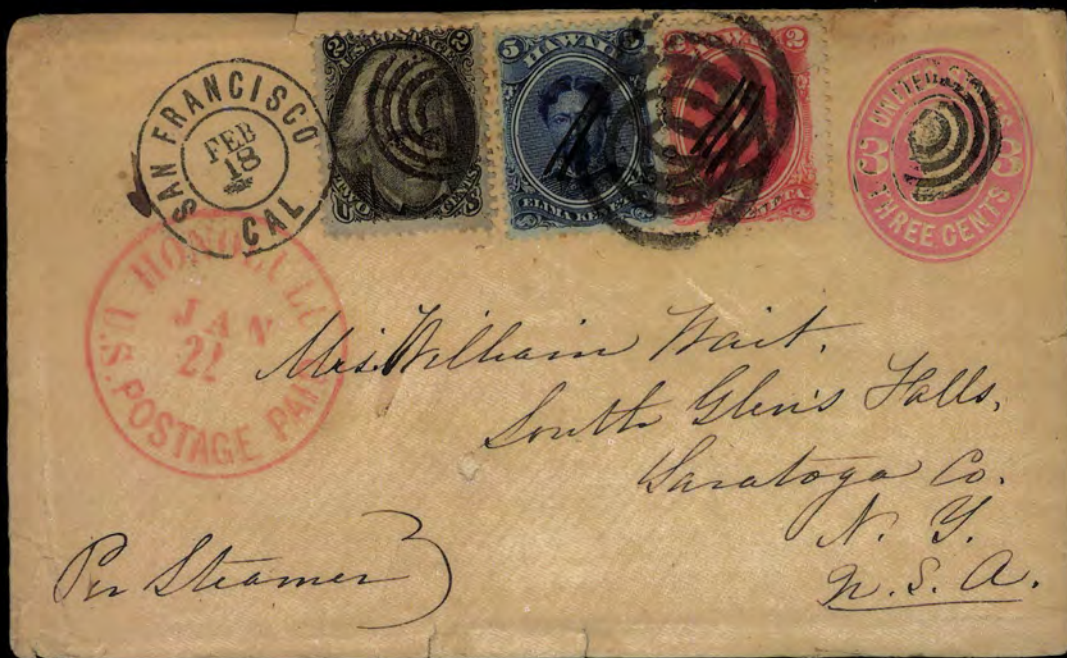 SAN FRANCISCO
FEB
18
CAL
2 U.S. POSTAGE 2
TWO CENTS
5 HAWAII
ELIMA KENETA
HAWAII 2
UNITED
3 3
THREE CENTS
HONOLULU
JAN
22
U.S. POSTAGE PAID
Mrs William Wait.
South Glen's Falls,
Saratoga Co.
N. Y.
U. S. A.
Per Steamer